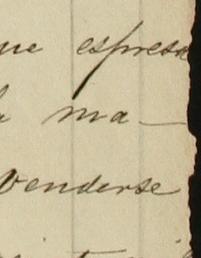 ue espresa
a ma—
venderse